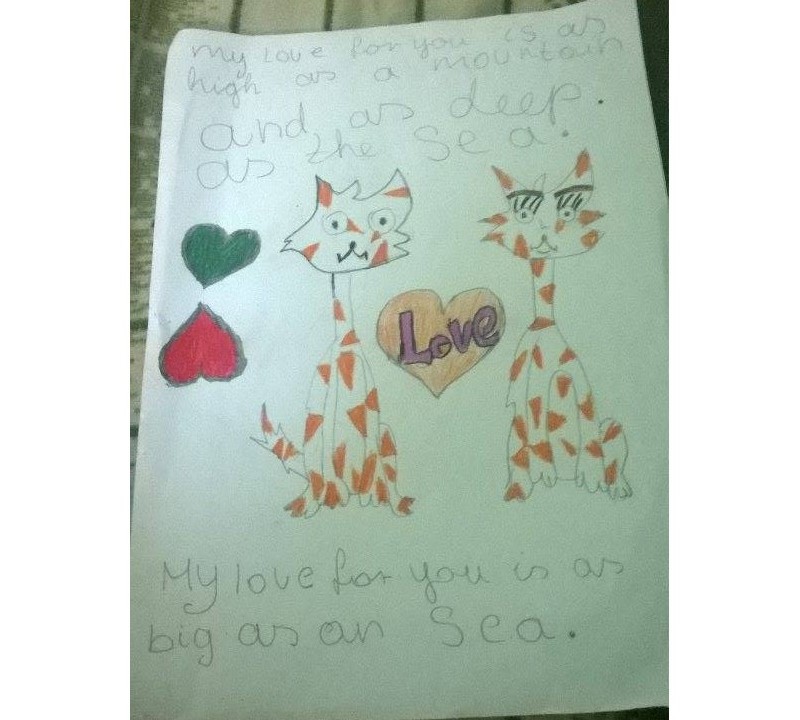 My love for you is as
high as a mountain
and as deep.
as the sea.
Love
My love for you is as
big as an Sea.